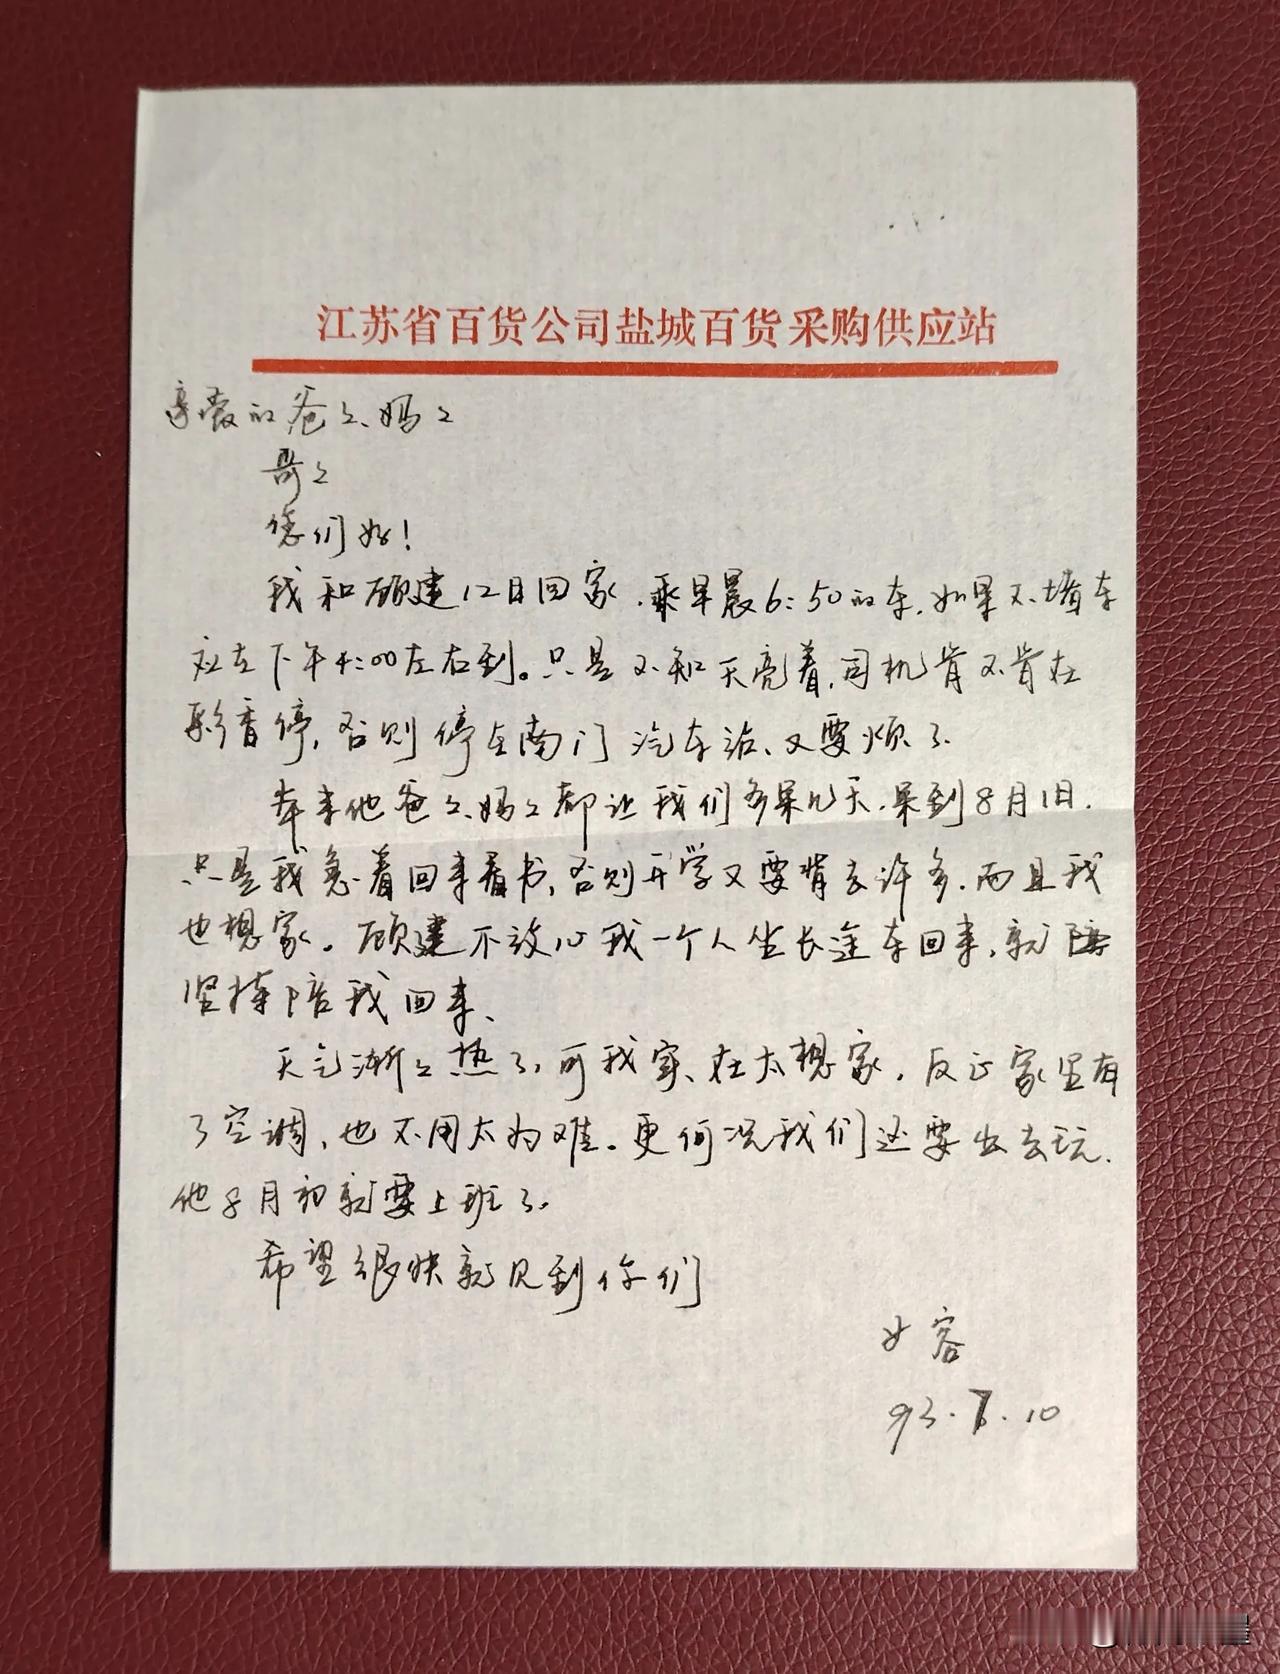 江苏省百货公司盐城百货采购供应站
亲爱的爸々、妈々
哥々
您们好！
我和顾建12日回家，乘早晨6:50的车，如果不堵车
应在下午4:00左右到。只是不知天亮着，司机肯不肯在
停，否则停在南门汽车站、又要烦了.
本来他爸々、妈々都让我们多呆几天，呆到8月1日.
只是我急着回来看书，否则开学又要背去许多，而且我
也想家。顾建不放心我一个人坐长途车回来，就
坚持陪我回来、
天气渐々热了，可我实、在太想家，反正家里有
了空调，也不用太为难。更何况我们还要出去玩、
他8月初就要上班了.
希望很快就见到你们
女容
93.7.10